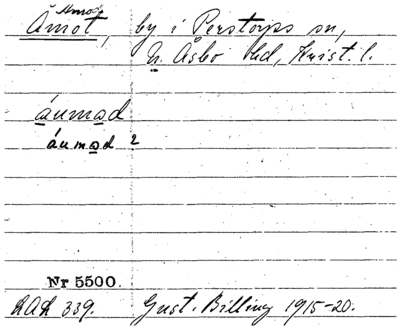 Åmot, by i Perstorps sn,
N. Åsbo hd, Krist. l.
áumad
áumad 2
Nr 5500.
LAL 339. Gust. Billing 1915-20.